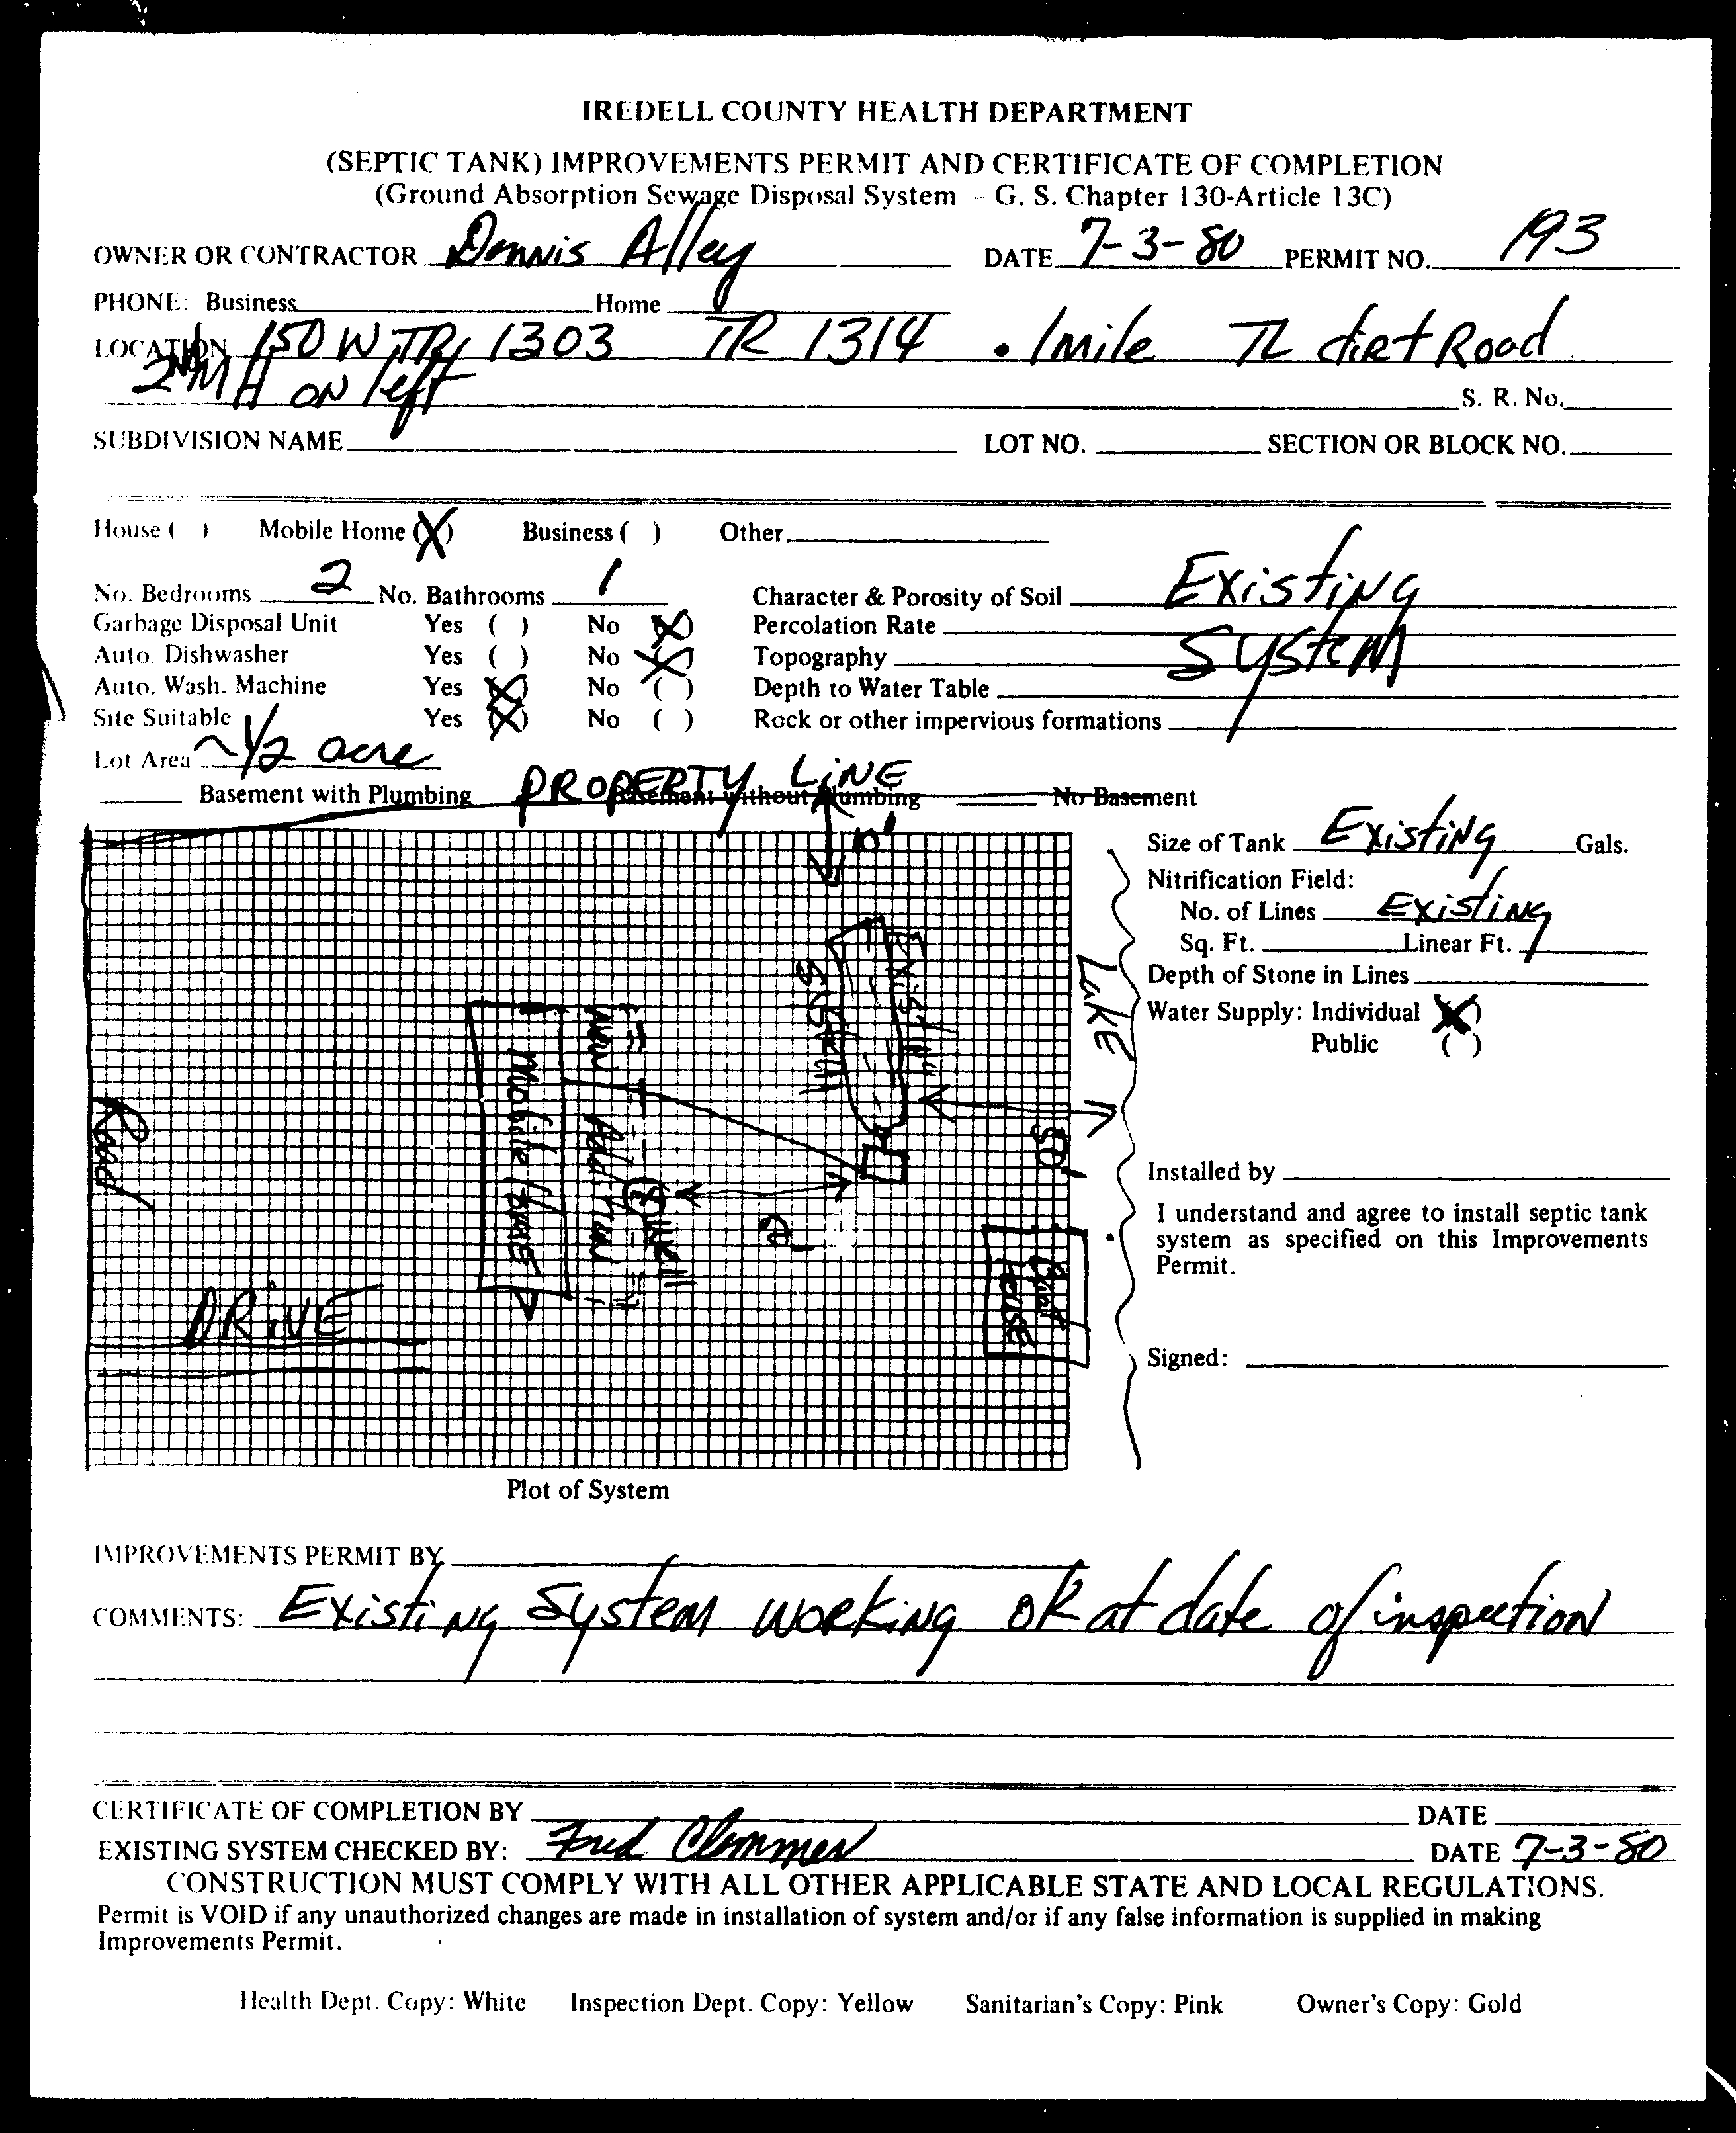 IREDELL COUNTY HEALTH DEPARTMENT
(SEPTIC TANK) IMPROVEMENTS PERMIT AND CERTIFICATE OF COMPLETION
(Ground Absorption Sewage Disposal System – G. S. Chapter 130-Article 13C)
OWNER OR CONTRACTOR Dennis Alley DATE 7-3-80 PERMIT NO. 193
PHONE: Business Home
LOCATION 150 W TR 1303 TR 1314 .1mile TL dirt Road
2nd MH ON left S. R. No.
SUBDIVISION NAME LOT NO. SECTION OR BLOCK NO.
House ( ) Mobile Home (X) Business ( ) Other
No. Bedrooms 2 No. Bathrooms 1 Character & Porosity of Soil Existing
Garbage Disposal Unit Yes ( ) No (X) Percolation Rate
Auto. Dishwasher Yes ( ) No (X) Topography System
Auto. Wash. Machine Yes (X) No ( ) Depth to Water Table
Site Suitable Yes (X) No ( ) Rock or other impervious formations
Lot Area ~1/2 acre
PROPERTY LINE
Basement with Plumbing Basement without Plumbing No Basement
10'
Size of Tank Existing Gals.
Nitrification Field:
No. of Lines Existing
Sq. Ft. Linear Ft.
Depth of Stone in Lines
Water Supply: Individual (X)
Public ( )
Existing
System
Lake
New Addition
Mobile Home
Road
Well
50'
Boat
House
DRIVE
Installed by
I understand and agree to install septic tank
system as specified on this Improvements
Permit.
Signed:
Plot of System
IMPROVEMENTS PERMIT BY
COMMENTS: Existing System working ok at date of inspection
CERTIFICATE OF COMPLETION BY DATE
EXISTING SYSTEM CHECKED BY: Fred Clemmer DATE 7-3-80
CONSTRUCTION MUST COMPLY WITH ALL OTHER APPLICABLE STATE AND LOCAL REGULATIONS.
Permit is VOID if any unauthorized changes are made in installation of system and/or if any false information is supplied in making
Improvements Permit.
Health Dept. Copy: White Inspection Dept. Copy: Yellow Sanitarian's Copy: Pink Owner's Copy: Gold